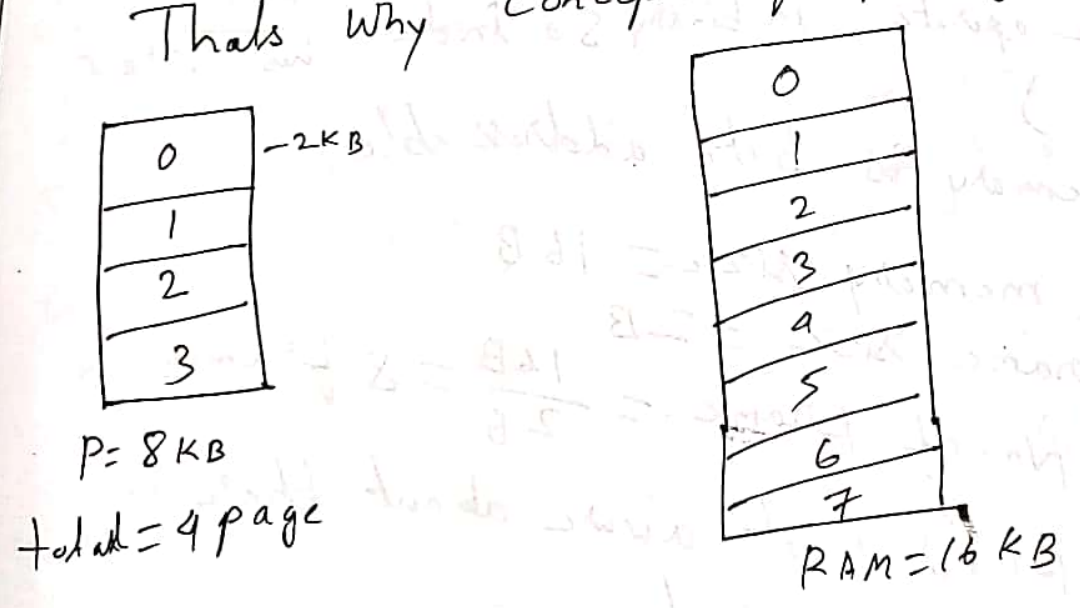 Thats Why
0 -2KB
1
2
3
P= 8 KB
total = 4 page
0
1
2
3
4
5
6
7
RAM = 16 KB